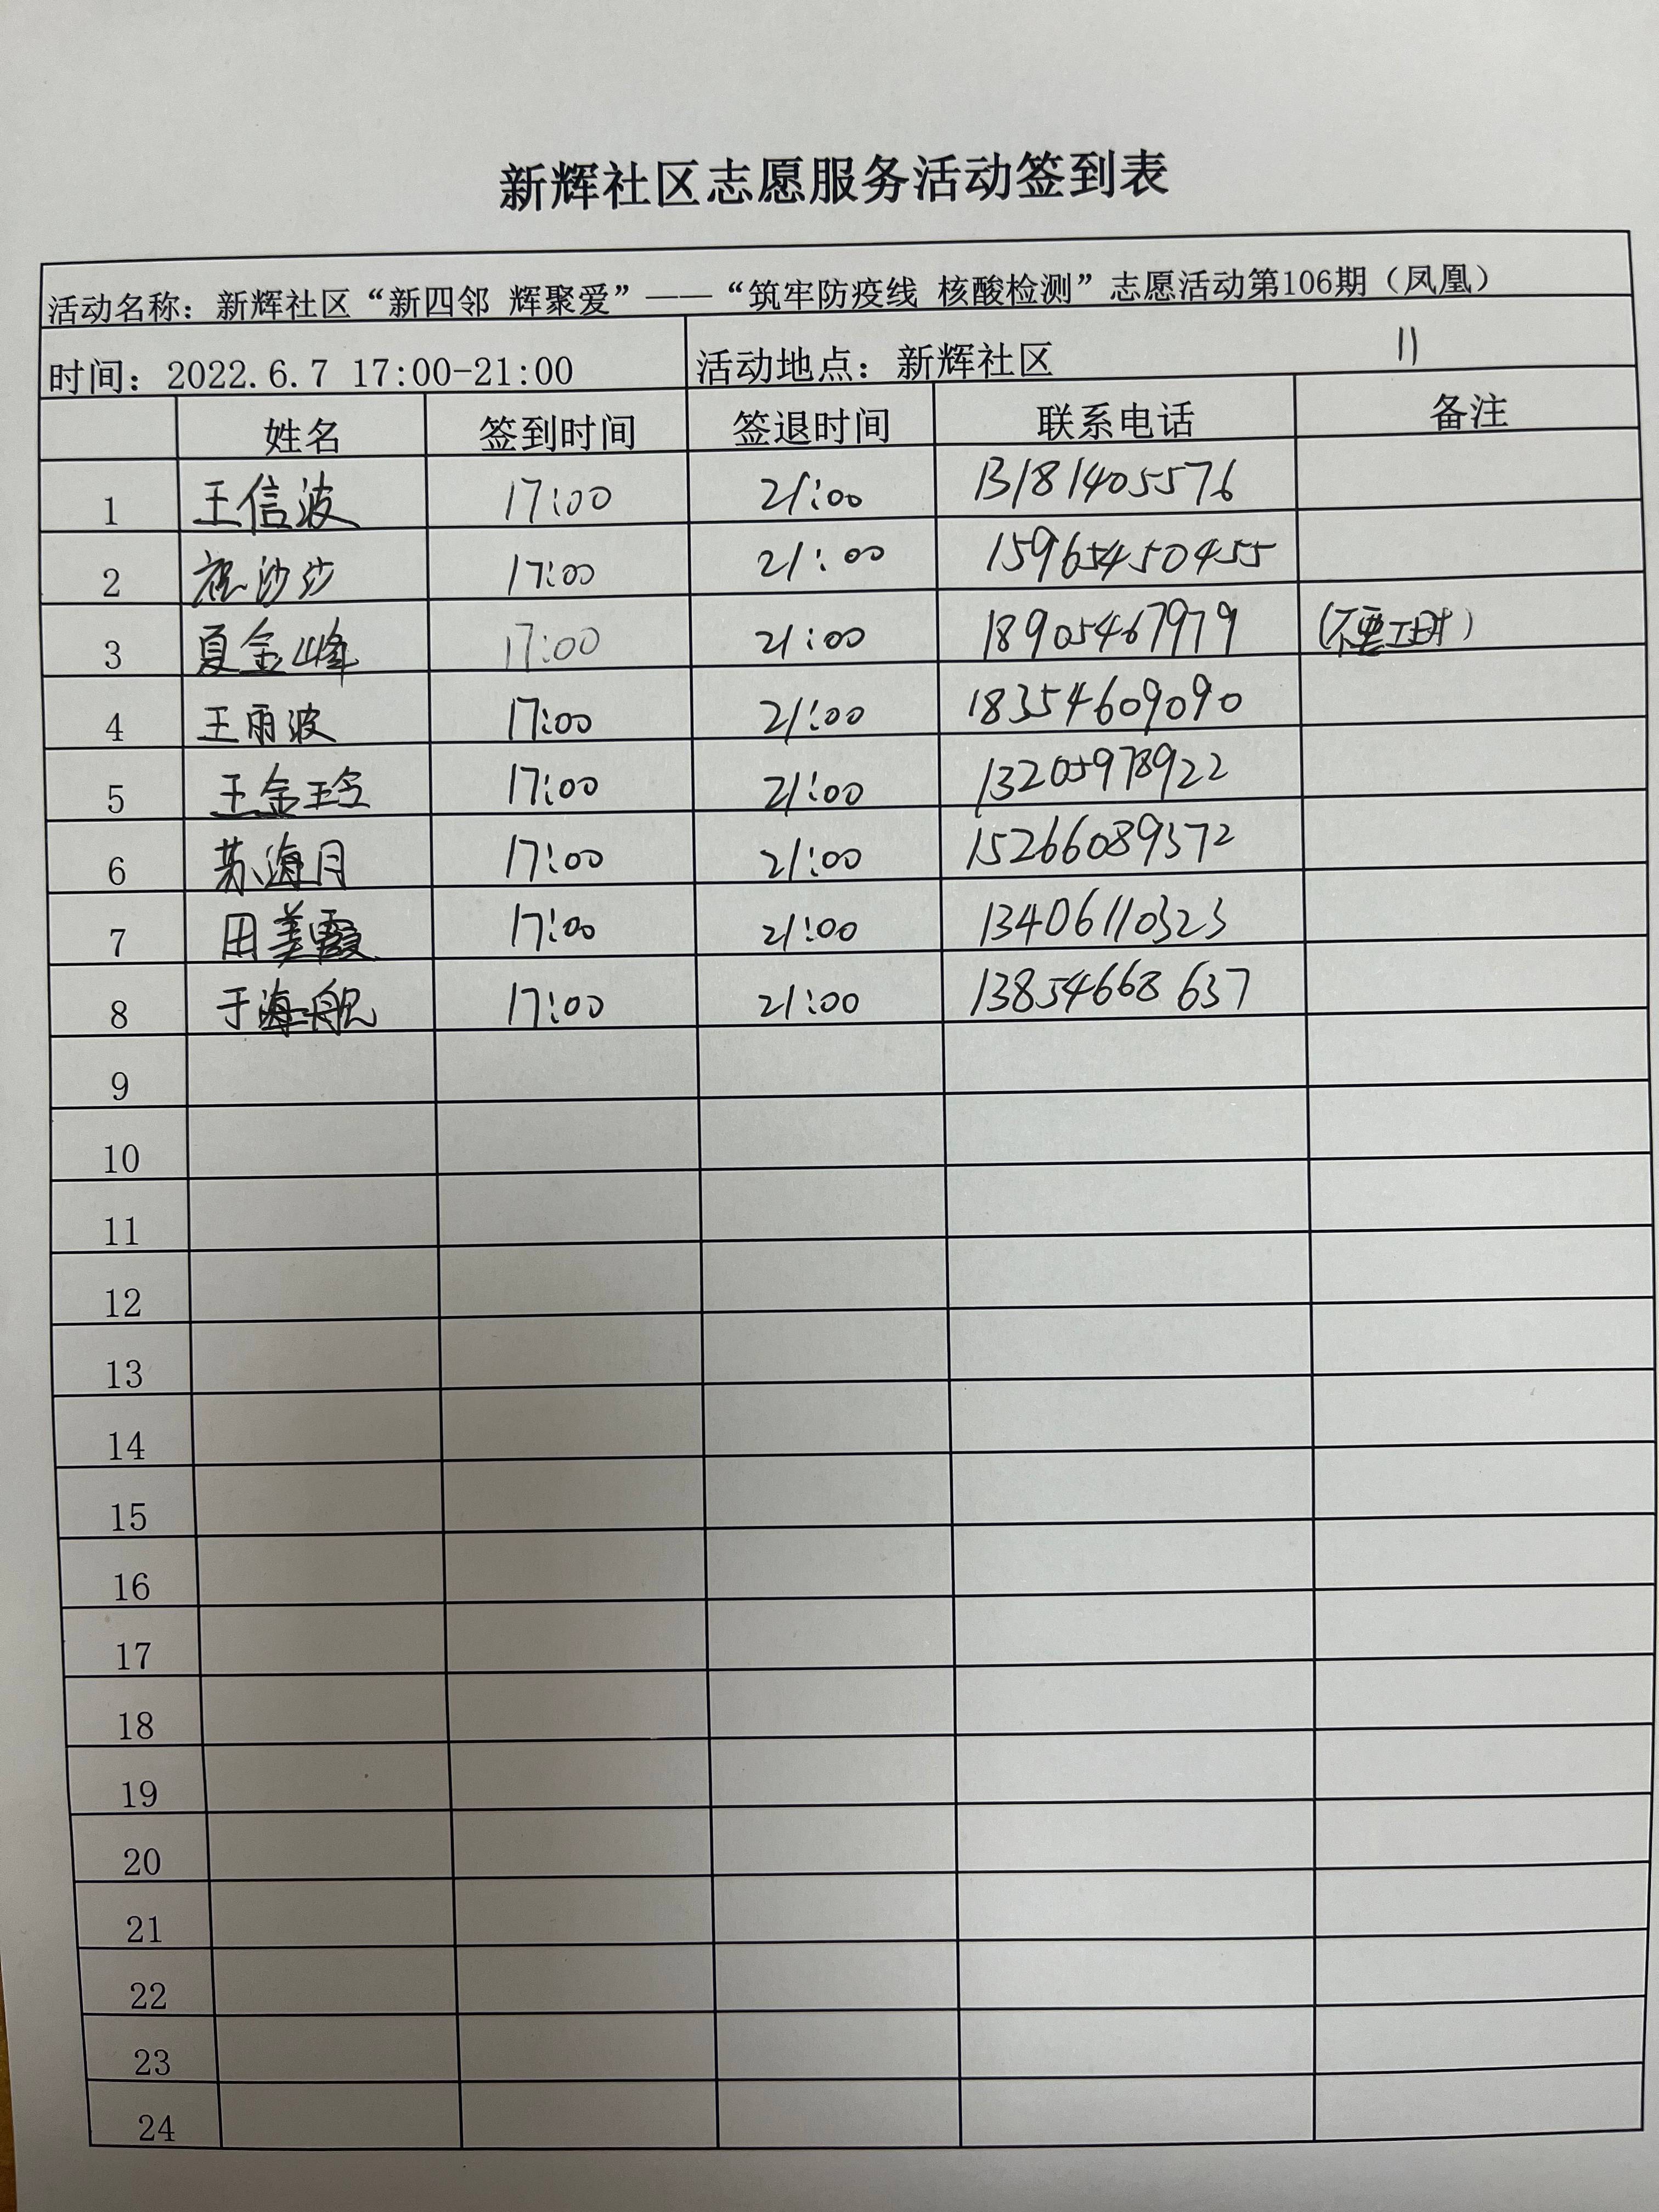 新辉社区志愿服务活动签到表
活动名称：新辉社区“新四邻 辉聚爱”——“筑牢防疫线 核酸检测”志愿活动第106期（凤凰）
时间：2022.6.7 17:00-21:00 活动地点：新辉社区 11
姓名 签到时间 签退时间 联系电话 备注
1 王信波 17:00 21:00 13181405576
2 沙沙 17:00 21:00 15965450455
3 夏金峰 17:00 21:00 18905467979 (不要工时)
4 王雨波 17:00 21:00 18354609090
5 王金玲 17:00 21:00 13205978922
6 苏海月 17:00 21:00 15266089372
7 田美霞 17:00 21:00 13406110323
8 于海舰 17:00 21:00 13854668637
9
10
11
12
13
14
15
16
17
18
19
20
21
22
23
24